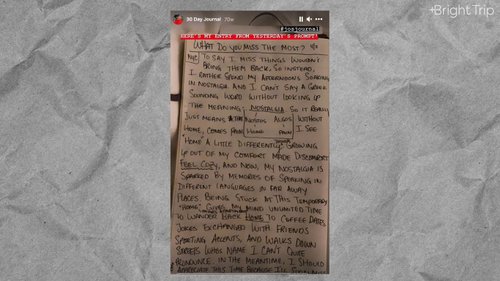 +Bright Trip
30 Day Journal 70w
#josjournal
HERE'S MY ENTRY FROM YESTERDAY'S PROMPT!
WHAT DO YOU MISS THE MOST?
TO SAY I MISS THINGS WOULDN'T
BRING THEM BACK. SO INSTEAD,
I RATHER SPEND MY AFTERNOONS SOAKING
IN NOSTALGIA AND I CAN'T SAY A GREEK
SOUNDING WORD WITHOUT LOOKING UP
THE MEANING. NOSTALGIA SO IT REALLY
JUST MEANS NOSTOS ALGOS WITHOUT
HOME, COMES PAIN HOME PAIN I SEE
"HOME" A LITTLE DIFFERENTLY. GROWING
UP OUT OF MY COMFORT MADE DISCOMFORT
FEEL COZY, AND NOW, MY NOSTALGIA IS
SPARKED BY MEMORIES OF SPEAKING IN
DIFFERENT LANGUAGES IN FAR AWAY
PLACES. BEING STUCK AT THIS TEMPORARY
"HOME" GIVES MY MIND UNLIMITED TIME
TO WANDER BACK HOME TO COFFEE DATES,
JOKES EXCHANGED WITH FRIENDS
SPORTING ACCENTS, AND WALKS DOWN
STREETS WHOS NAME I CAN'T QUITE
PRONOUNCE. IN THE MEANTIME, I SHOULD
APPRECIATE THIS TIME BECAUSE I'LL